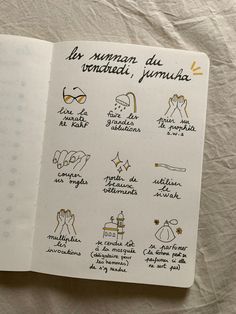 les sunnan du
vendredi, jumuha
lire la
sourate
Al Kahf
faire les
grandes
ablutions
prier sur
le prophète
s.w.s
couper
ses ongles
porter de
beaux
vêtements
utiliser
le
siwak
multiplier
les
invocations
se rendre tôt
à la mosquée
(obligatoire pour
les hommes)
de s'y rendre
se parfumer
(la femme peut se
parfumer si elle
ne sort pas)